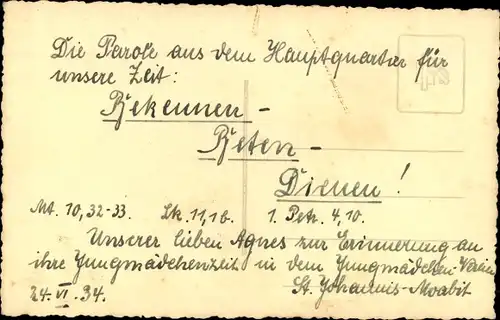 Die Parole aus dem Hauptquartier für
unsere Zeit:
Bekennen -
Beten -
Dienen!
Mt. 10,32-33. Lk. 11,1b. 1. Petr. 4,10.
Unserer lieben Agnes zur Erinnerung an
ihre Jungmädchenzeit in dem Jungmädchen-Verein
24. VI. 34. St. Johannis-Moabit